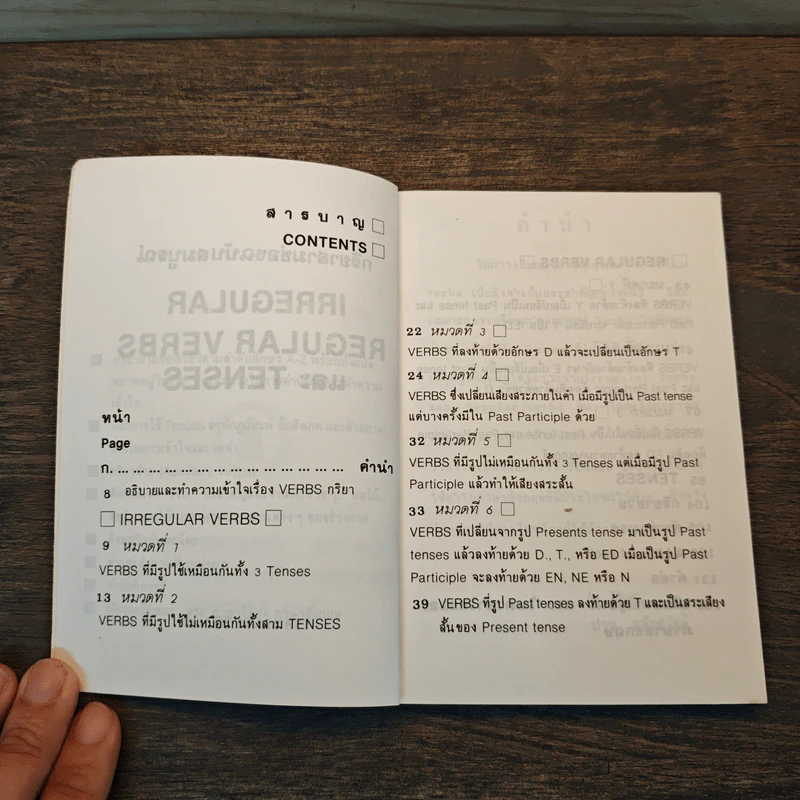 สารบาญ
CONTENTS
หน้า
Page
ก. ... ... ... ... ... ... ... ... ... ... ... ... ... คำนำ
8 อธิบายและทำความเข้าใจเรื่อง VERBS กริยา
IRREGULAR VERBS
9 หมวดที่ 1
VERBS ที่มีรูปใช้เหมือนกันทั้ง 3 Tenses
13 หมวดที่ 2
VERBS ที่มีรูปใช้ไม่เหมือนกันทั้งสาม TENSES
22 หมวดที่ 3
VERBS ที่ลงท้ายด้วยอักษร D แล้วจะเปลี่ยนเป็นอักษร T
24 หมวดที่ 4
VERBS ซึ่งเปลี่ยนเสียงสระภายในคำ เมื่อมีรูปเป็น Past tense
แต่บางครั้งมีใน Past Participle ด้วย
32 หมวดที่ 5
VERBS ที่มีรูปไม่เหมือนกันทั้ง 3 Tenses แต่เมื่อมีรูป Past
Participle แล้วทำให้เสียงสระสั้น
33 หมวดที่ 6
VERBS ที่เปลี่ยนจากรูป Presents tense มาเป็นรูป Past
tenses แล้วลงท้ายด้วย D., T., หรือ ED เมื่อเป็นรูป Past
Participle จะลงท้ายด้วย EN, NE หรือ N
39 VERBS ที่รูป Past tenses ลงท้ายด้วย T และเป็นสระเสียง
สั้นของ Present tense